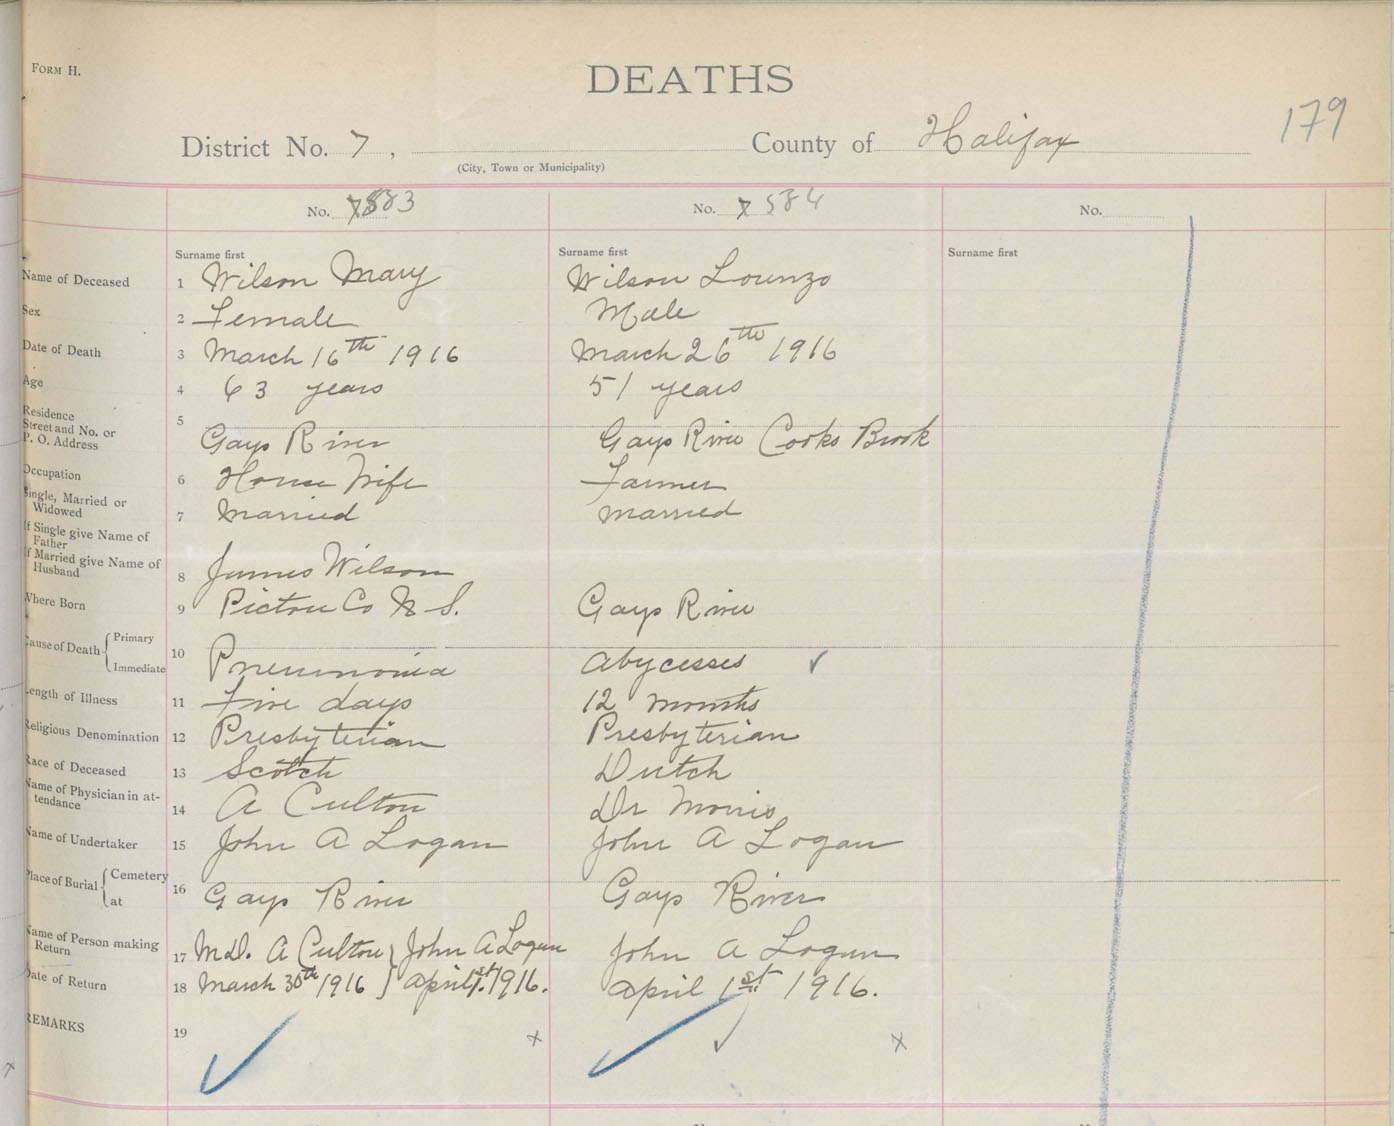 FORM H.
DEATHS
179
District No. 7, County of Halifax
(City, Town or Municipality)
No. 583 No. 7 584 No.
Surname first Surname first Surname first
Name of Deceased 1 Wilson Mary Wilson Lorenzo
Sex 2 Female Male
Date of Death 3 March 16th 1916 March 26th 1916
Age 4 63 years 51 years
Residence
Street and No. or
P. O. Address 5 Gays River Gays River Cooks Brook
Occupation 6 House Wife Farmer
Single, Married or
Widowed 7 Married Married
If Single give Name of
Father
If Married give Name of
Husband 8 James Wilson
Where Born 9 Pictou Co N S. Gays River
Cause of Death { Primary
Immediate 10 Pneumonia Abycesses ✓
Length of Illness 11 Five days 12 months
Religious Denomination 12 Presbyterian Presbyterian
Race of Deceased 13 Scotch Dutch
Name of Physician in at-
tendance 14 A Culton Dr Morris
Name of Undertaker 15 John A Logan John A Logan
Place of Burial { Cemetery
at 16 Gays River Gays River
Name of Person making
Return 17 M.D. A Culton } John A Logan John A Logan
Date of Return 18 March 30th 1916 } April 1st. 1916. April 1st 1916.
REMARKS 19 x x